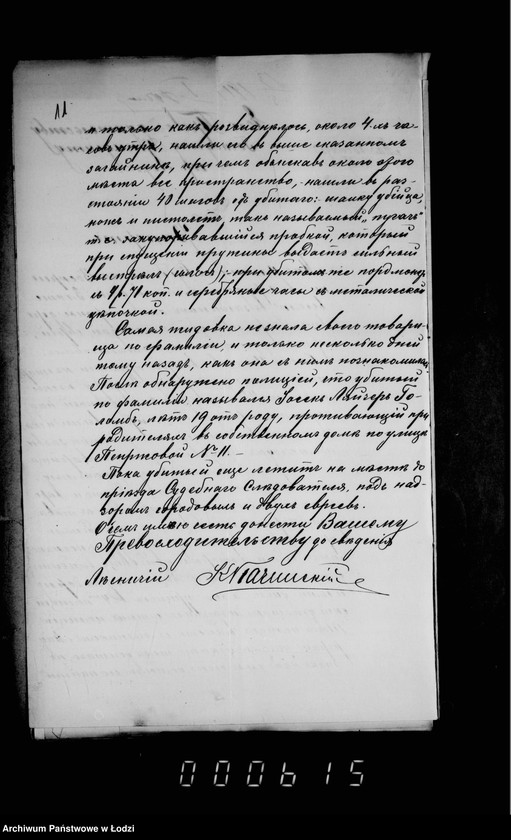 11
и только какъ розвиднѣлось, около 4-хъ ча-
совъ утра, нашли его въ выше сказанномъ
загайникѣ, при чемъ обыскавъ около этого
мѣста все пространство, нашли въ раз-
стояніи 40 шаговъ отъ убитаго: шапку убійца,
ножъ и пистолетъ, такъ называемый „пугачъ"
т. е. закупоривавшійся пробкой, который
при спущеніи пружины выдастъ сильный
выстрѣлъ; при убитомъ же портмонэ
съ 4 р. 70 коп. и серебряные часы съ металической
цѣпочкой.
Самая жидовка незнала своего товари-
ща по фамиліи, и только нѣсколько дней
тому назадъ, какъ она съ нимъ познакомилась.
Позже обнаружено полиціей, что убитый
по фамиліи назывался Іосекъ Лайзеръ Го-
ламбъ, лѣтъ 19 отъ роду, проживающій при
родителяхъ въ собственномъ домѣ по улицѣ
№ 11. –
Пока убитый еще лежитъ на мѣстѣ до
пріѣзда Судебнаго Слѣдователя, подъ над-
зоромъ городовыхъ и двухъ евреевъ.
О чемъ имѣю честь донести Вашему
Превосходительству до свѣденія
Лѣсничій
000615
Archiwum Państwowe w Łodzi